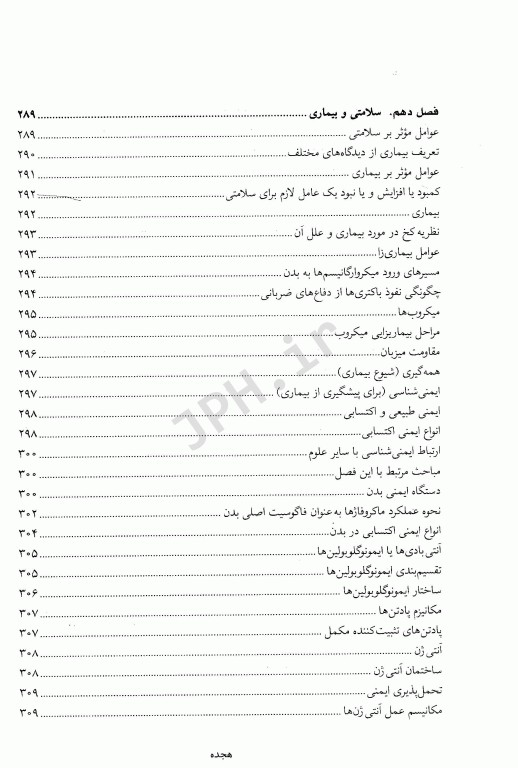 فصل دهم. سلامتی و بیماری ........ ۲۸۹
عوامل مؤثر بر سلامتی ........ ۲۸۹
تعریف بیماری از دیدگاه‌های مختلف ........ ۲۹۰
عوامل مؤثر بر بیماری ........ ۲۹۱
کمبود یا افزایش و یا نبود یک عامل لازم برای سلامتی ........ ۲۹۲
بیماری ........ ۲۹۲
نظریه کخ در مورد بیماری و علل آن ........ ۲۹۳
عوامل بیماری‌زا ........ ۲۹۳
مسیرهای ورود میکروارگانیسم‌ها به بدن ........ ۲۹۴
چگونگی نفوذ باکتری‌ها از دفاع‌های ضربانی ........ ۲۹۴
میکروب‌ها ........ ۲۹۵
مراحل بیماریزایی میکروب ........ ۲۹۵
مقاومت میزبان ........ ۲۹۶
همه‌گیری (شیوع بیماری) ........ ۲۹۷
ایمنی‌شناسی (برای پیشگیری از بیماری) ........ ۲۹۷
ایمنی طبیعی و اکتسابی ........ ۲۹۸
انواع ایمنی اکتسابی ........ ۲۹۸
ارتباط ایمنی‌شناسی با سایر علوم ........ ۳۰۰
مباحث مرتبط با این فصل ........ ۳۰۰
دستگاه ایمنی بدن ........ ۳۰۰
نحوه عملکرد ماکروفاژها به‌عنوان فاگوسیت اصلی بدن ........ ۳۰۲
انواع ایمنی اکتسابی در بدن ........ ۳۰۴
آنتی‌بادی‌ها یا ایمونوگلوبولین‌ها ........ ۳۰۵
تقسیم‌بندی ایمونوگلوبولین‌ها ........ ۳۰۵
ساختار ایمونوگلوبولین‌ها ........ ۳۰۶
مکانیزم پادتن‌ها ........ ۳۰۷
پادتن‌های تثبیت‌کننده مکمل ........ ۳۰۷
آنتی ژن ........ ۳۰۸
ساختمان آنتی ژن ........ ۳۰۸
تحمل‌پذیری ایمنی ........ ۳۰۹
مکانیسم عمل آنتی ژن‌ها ........ ۳۰۹
هجده
JPH.ir